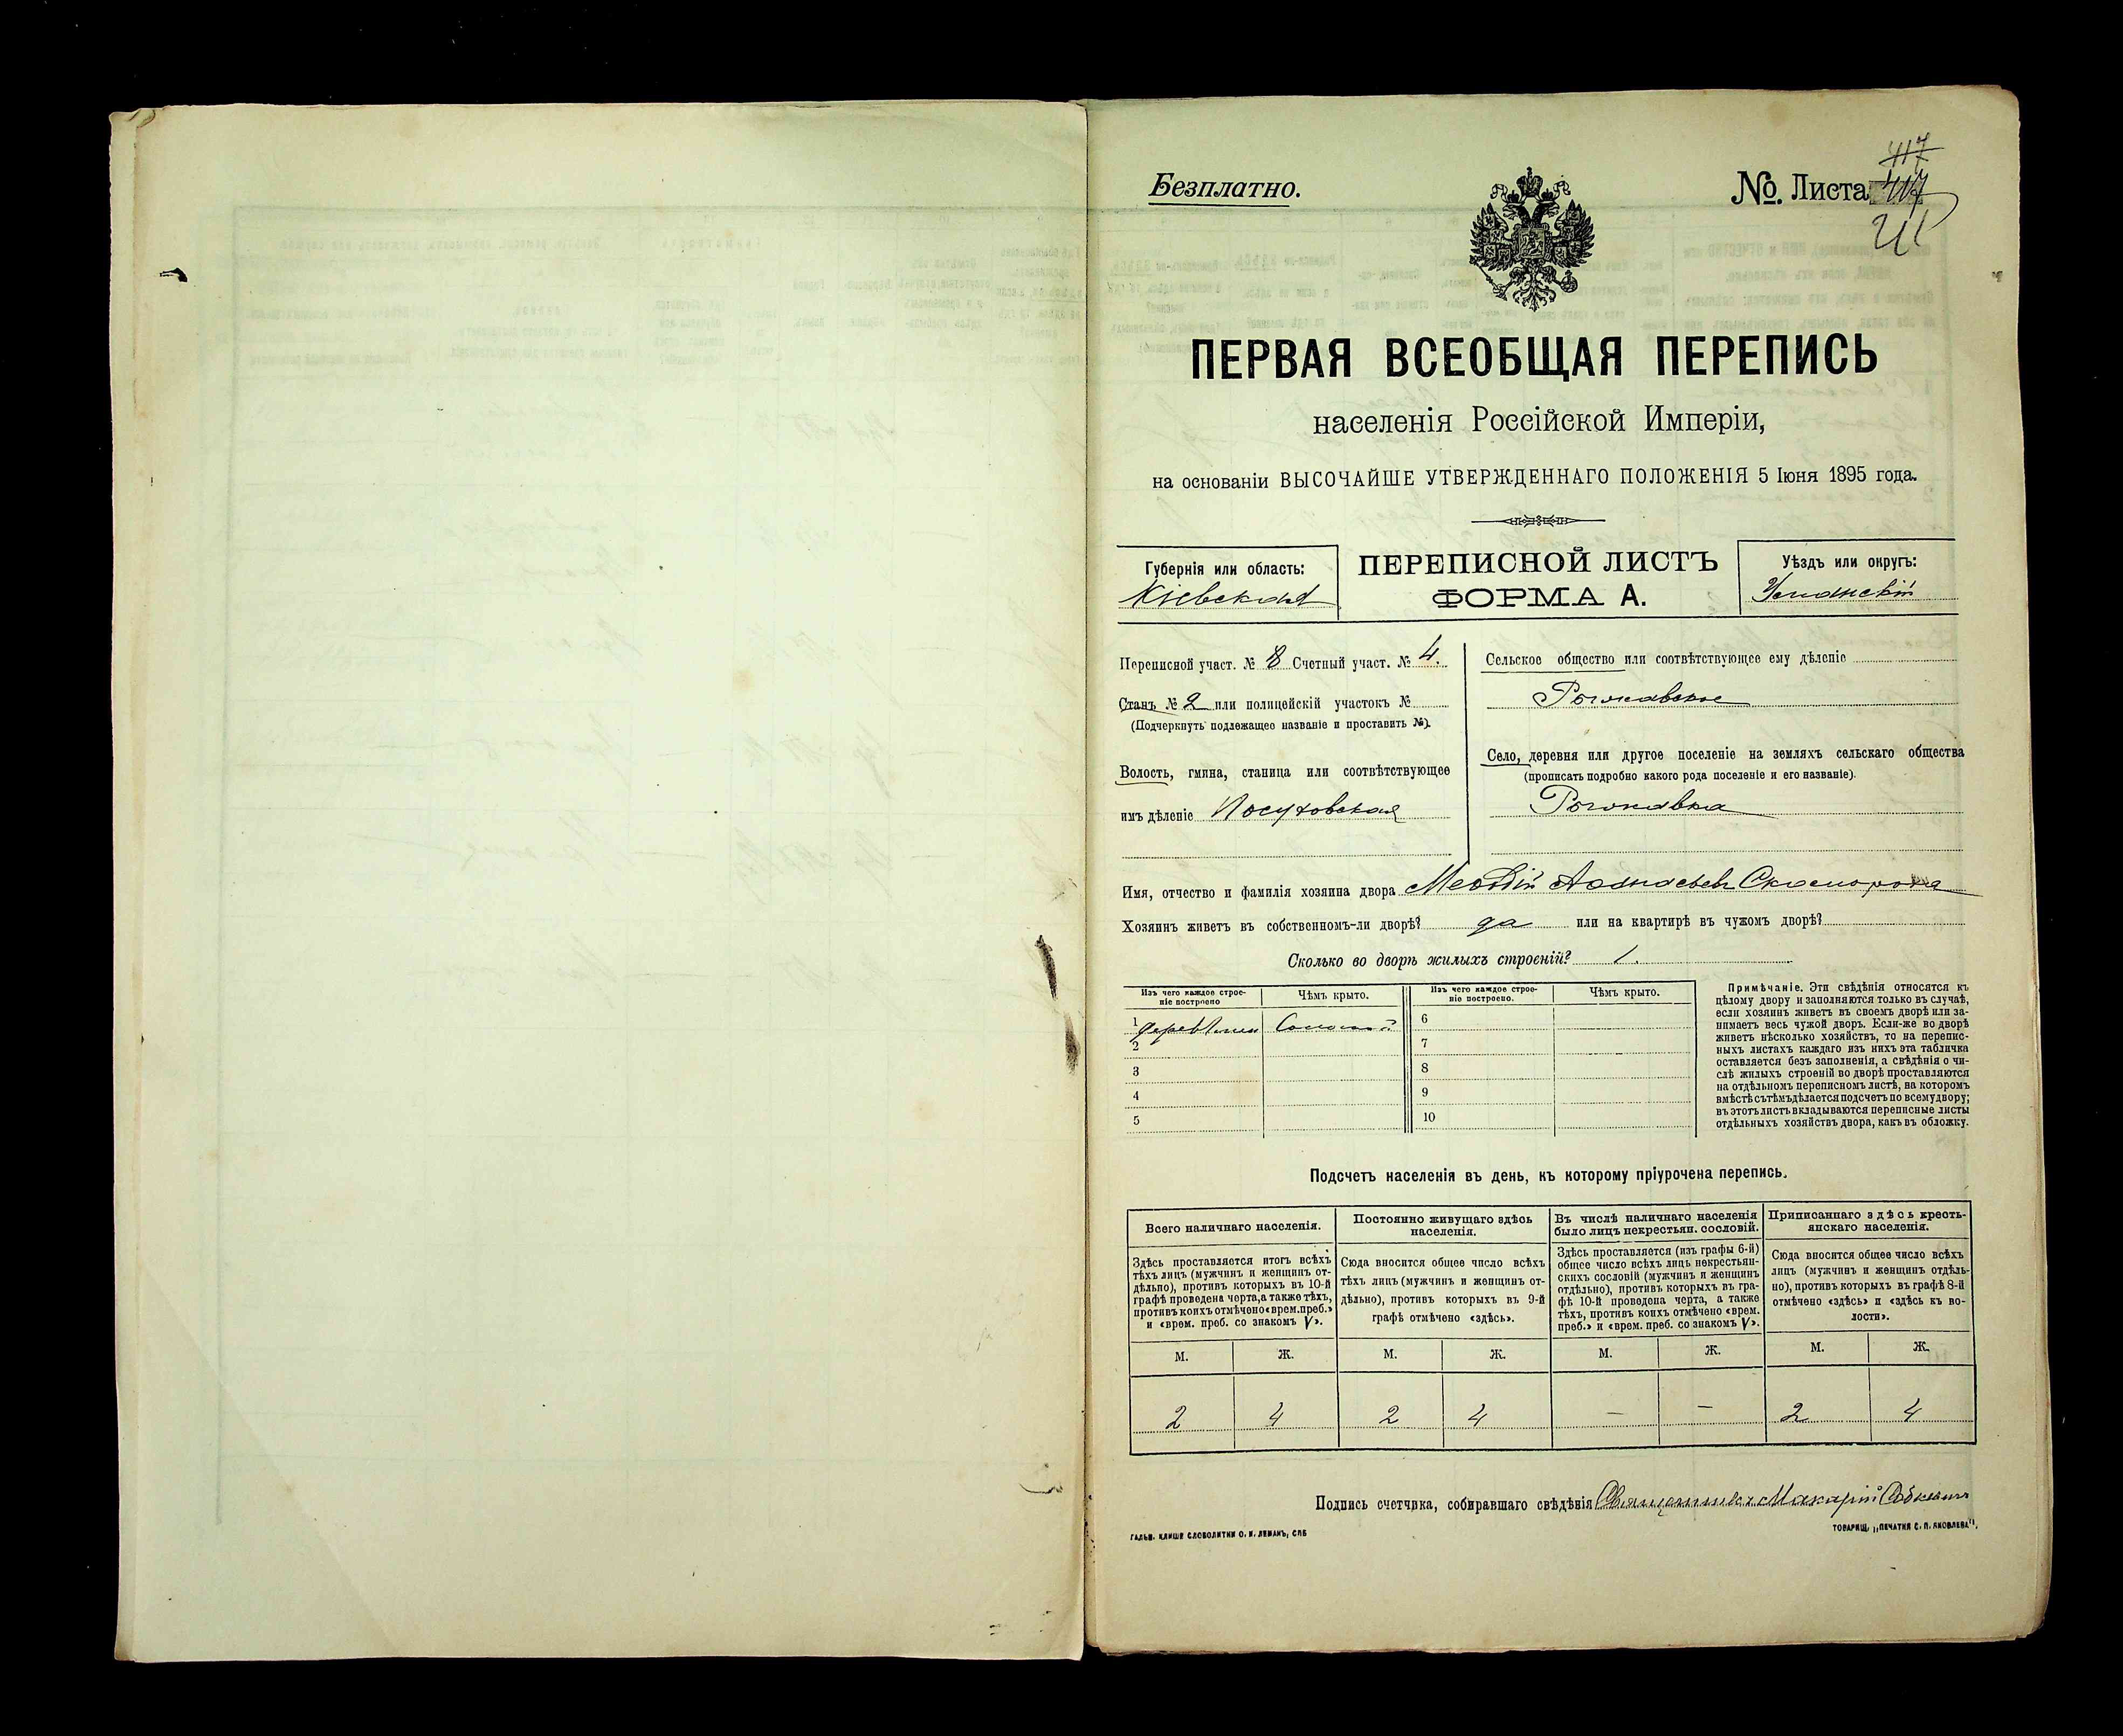 Безплатно.
№. Листа 417
417
211
ПЕРВАЯ ВСЕОБЩАЯ ПЕРЕПИСЬ
населенія Россійской Имперіи,
на основаніи ВЫСОЧАЙШЕ УТВЕРЖДЕННАГО ПОЛОЖЕНІЯ 5 Іюня 1895 года.
Губернія или область:
Кіевская
ПЕРЕПИСНОЙ ЛИСТЪ
ФОРМА А.
Уѣздъ или округъ:
Уманскій
Переписной участ. № 8 Счетный участ. № 4.
Станъ № 2 или полицейскій участокъ №
(Подчеркнуть подлежащее названіе и проставить №).
Волость, гмина, станица или соотвѣтствующее
имъ дѣленіе Посуховская
Сельское общество или соотвѣтствующее ему дѣленіе
Рыжавское
Село, деревня или другое поселеніе на земляхъ сельскаго общества
(прописать подробно какого рода поселеніе и его названіе).
Рыжавка
Имя, отчество и фамилія хозяина двора Меѳодій Аѳанасьевъ Скоморо
Хозяинъ живетъ въ собственномъ-ли дворѣ? да или на квартирѣ въ чужомъ дворѣ?
Сколько во дворѣ жилыхъ строеній? 1.
Изъ чего каждое строе-
ніе построено
Чѣмъ крыто.
Изъ чего каждое строе-
ніе построено.
Чѣмъ крыто.
1 Соломой 6
2 7
3 8
4 9
5 10
Примѣчаніе. Эти свѣдѣнія относятся къ
цѣлому двору и заполняются только въ случаѣ,
если хозяинъ живетъ въ своемъ дворѣ или за-
нимаетъ весь чужой дворъ. Если-же во дворѣ
живетъ нѣсколько хозяйствъ, то на перепис-
ныхъ листахъ каждаго изъ нихъ эта табличка
оставляется безъ заполненія, а свѣдѣнія о чи-
слѣ жилыхъ строеній во дворѣ проставляются
на отдѣльномъ переписномъ листѣ, на которомъ
вмѣстѣ съ тѣмъ дѣлается подсчетъ по всему двору;
въ этотъ листъ вкладываются переписные листы
отдѣльныхъ хозяйствъ двора, какъ въ обложку.
Подсчетъ населенія въ день, къ которому пріурочена перепись.
Всего наличнаго населенія.
Здѣсь проставляется итогъ всѣхъ
тѣхъ лицъ (мужчинъ и женщинъ от-
дѣльно), противъ которыхъ въ 10-й
графѣ проведена черта, а также тѣхъ,
противъ коихъ отмѣчено «врем. преб.»
и «врем. преб. со знакомъ V».
Постоянно живущаго здѣсь
населенія.
Сюда вносится общее число всѣхъ
тѣхъ лицъ (мужчинъ и женщинъ от-
дѣльно), противъ которыхъ въ 9-й
графѣ отмѣчено «здѣсь».
Въ числѣ наличнаго населенія
было лицъ некрестьян. сословій.
Здѣсь проставляется (изъ графы 6-й)
общее число всѣхъ лицъ некрестьян-
скихъ сословій (мужчинъ и женщинъ
отдѣльно), противъ которыхъ въ гра-
фѣ 10-й проведена черта, а также
тѣхъ, противъ коихъ отмѣчено «врем.
преб.» и «врем. преб. со знакомъ V».
Приписаннаго здѣсь кресть-
янскаго населенія.
Сюда вносится общее число всѣхъ
лицъ (мужчинъ и женщинъ отдѣль-
но), противъ которыхъ въ графѣ 8-й
отмѣчено «здѣсь» и «здѣсь къ во-
лости».
М. Ж. М. Ж. М. Ж. М. Ж.
2 4 2 4 — — 2 4
Подпись счетчика, собиравшаго свѣдѣнія Священникъ Макарій
ГАЛЬВ. КЛИШЕ СЛОВОЛИТНИ О. И. ЛЕМАНЪ, СПБ
ТОВАРИЩ. „ПЕЧАТНЯ С. П. ЯКОВЛЕВА“.